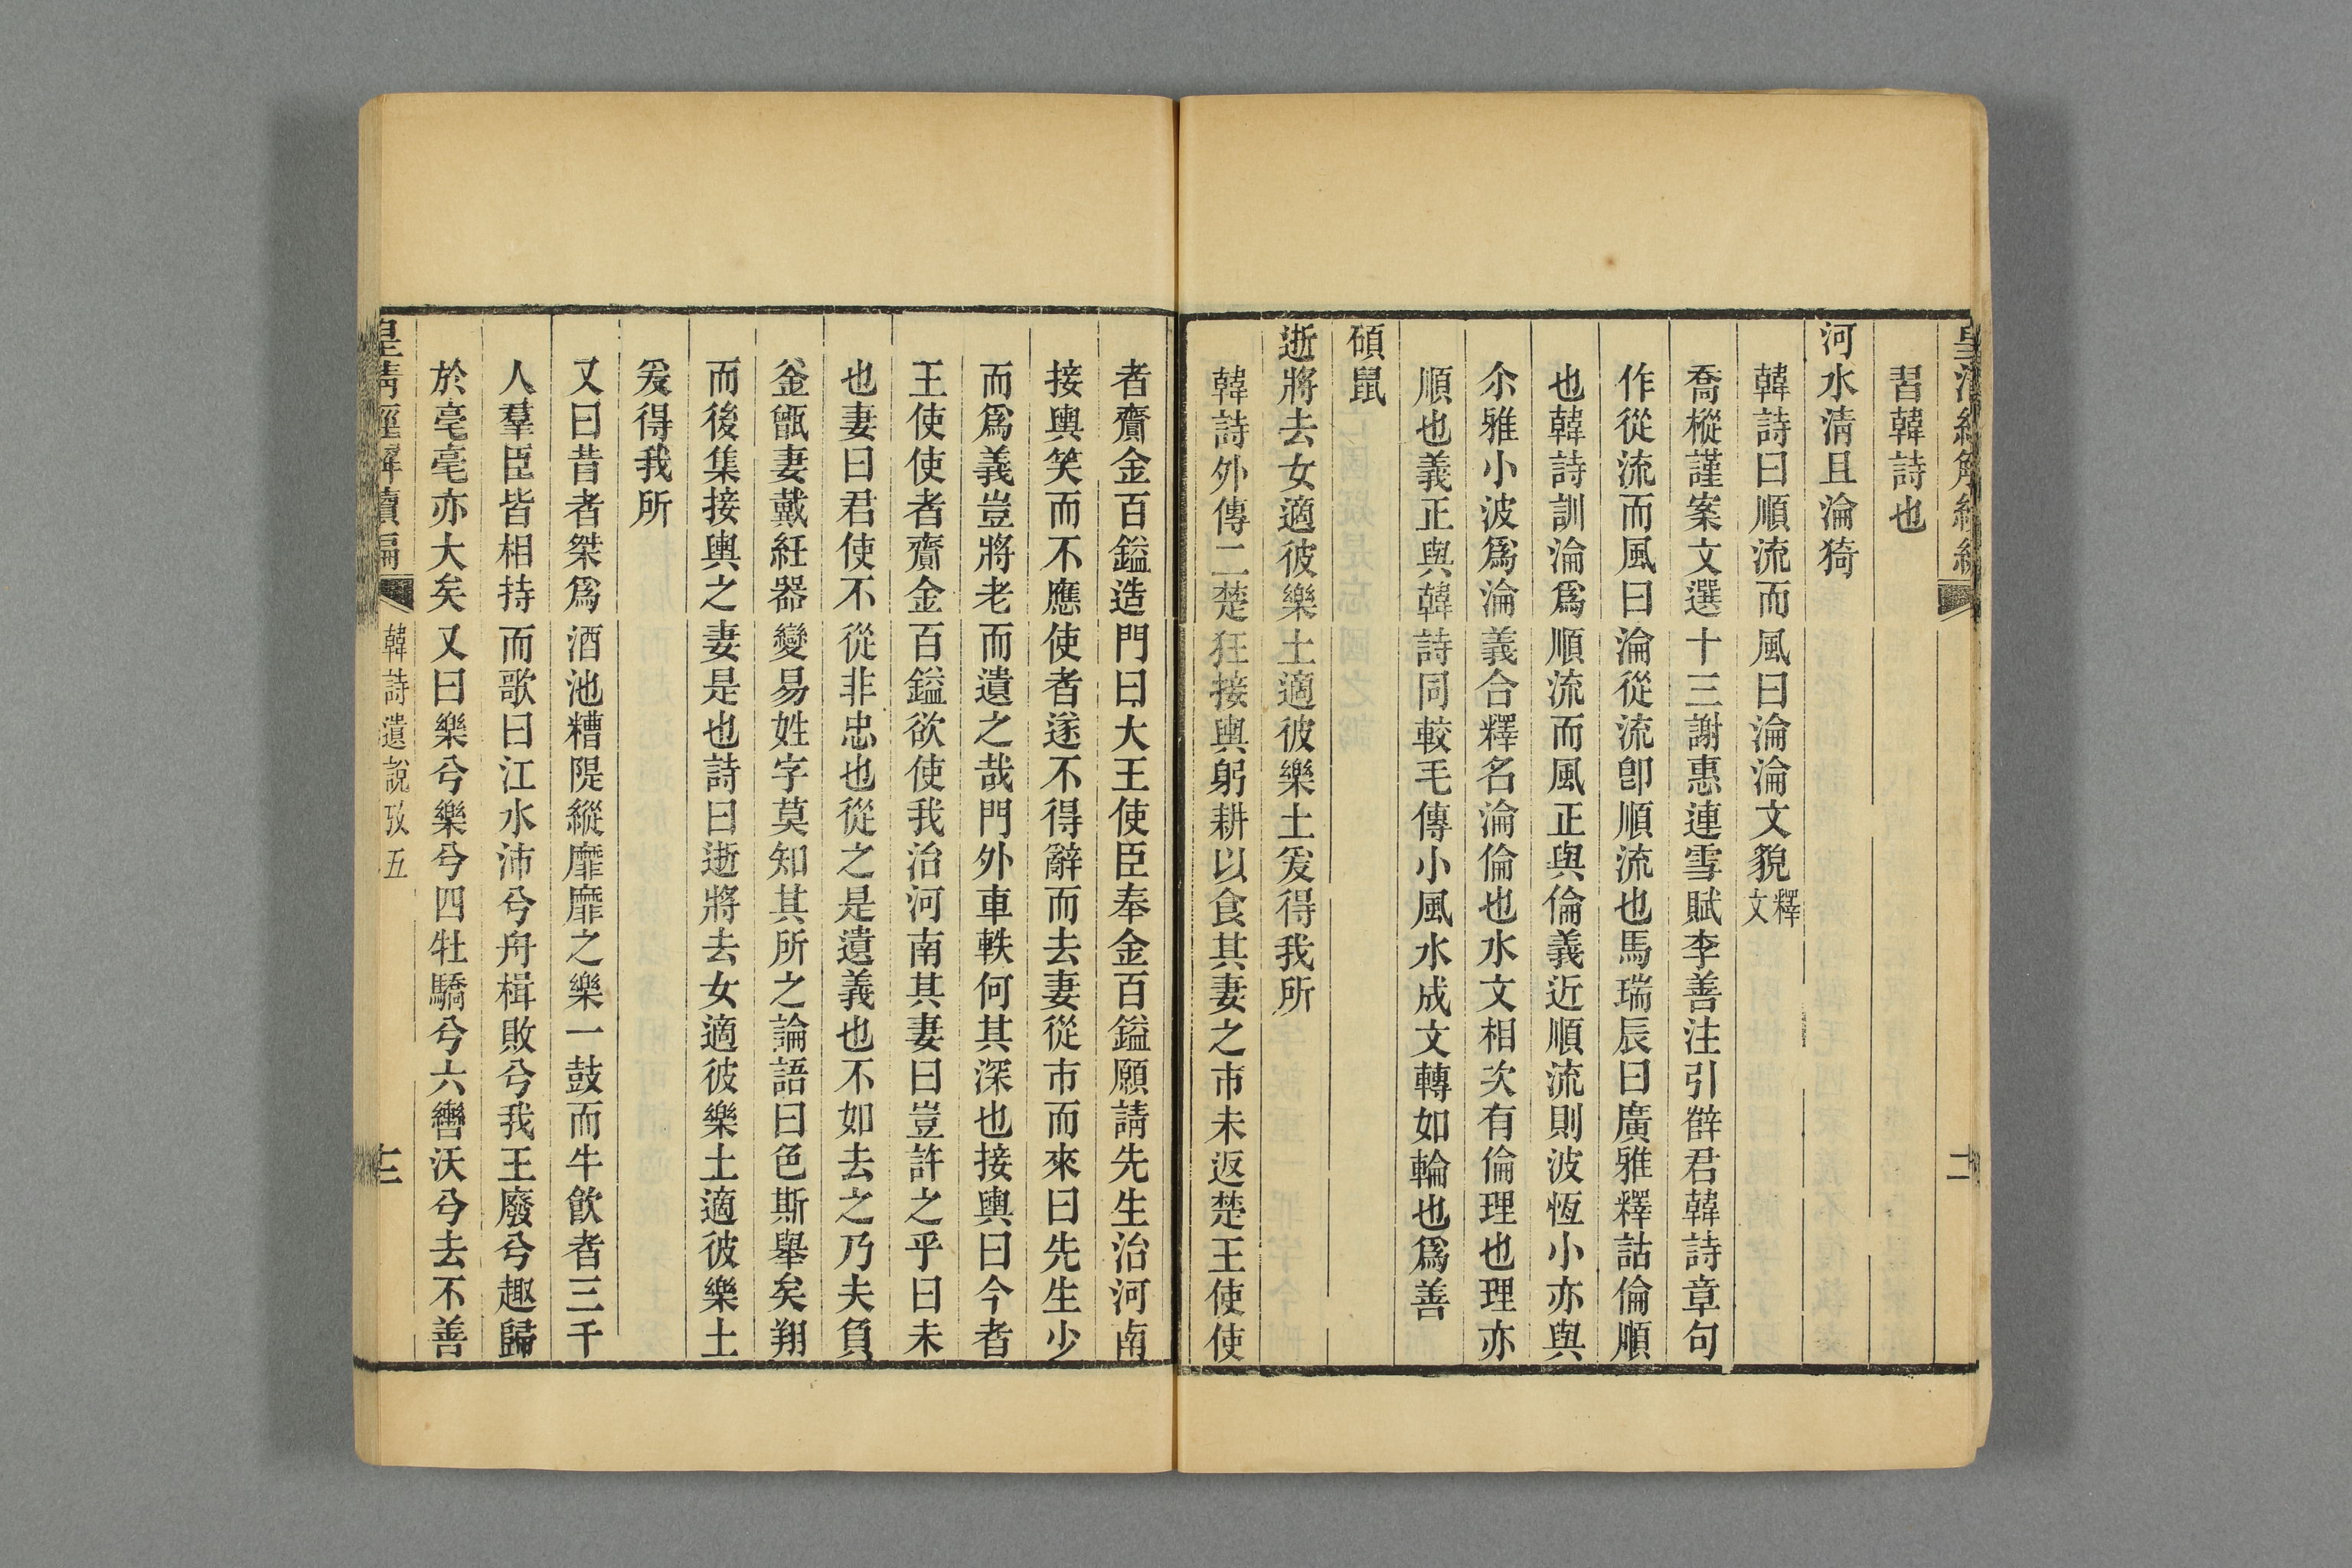 習韓詩也
河水淸且淪猗
韓詩曰順流而風曰淪淪文貌釋文
喬樅謹案文選十三謝惠連雪賦李善注引薛君韓詩章句
作從流而風曰淪從流卽順流也馬瑞辰曰廣雅釋詁倫順
也韓詩訓淪爲順流而風正與倫義近順流則波恆小亦與
尒雅小波爲淪義合釋名淪倫也水文相次有倫理也理亦
順也義正與韓詩同較毛傳小風水成文轉如輪也爲善
碩鼠
逝將去女適彼樂土適彼樂土爰得我所
韓詩外傳二楚狂接輿躬耕以食其妻之市未返楚王使使
者齎金百鎰造門曰大王使臣奉金百鎰願請先生治河南
接輿笑而不應使者遂不得辭而去妻從市而來曰先生少
而爲義豈將老而遺之哉門外車軼何其深也接輿曰今者
王使使者齎金百鎰欲使我治河南其妻曰豈許之乎曰未
也妻曰君使不從非忠也從之是遺義也不如去之乃夫負
釜甑妻戴紝器變易姓字莫知其所之論語曰色斯舉矣翔
而後集接輿之妻是也詩曰逝將去女適彼樂土適彼樂土
爰得我所
又曰昔者桀爲酒池糟隄縱靡靡之樂一鼓而牛飮者三千
人羣臣皆相持而歌曰江水沛兮舟楫敗兮我王廢兮趣歸
於亳亳亦大矣又曰樂兮樂兮四牡驕兮六轡沃兮去不善
皇淸經解續編 韓詩遺說攷五 十二